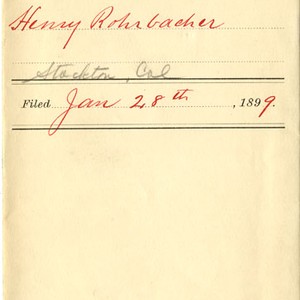 Henry Rohrbacher
Stockton, Cal
Filed Jan 28th, 1899.